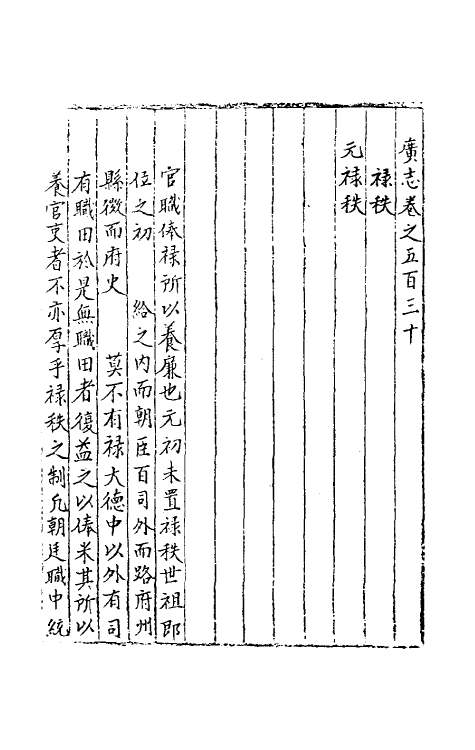 廣志卷之五百三十
祿秩
元祿秩
官職俸祿所以養廉也元初未置祿秩世祖郎
位之初 給之內而朝臣百司外而路府州
縣徵而府史 莫不有祿大德中以外有司
有職田於是無職田者復益之以俸米其所以
養官吏者不亦厚乎祿秩之制凡朝廷職中統